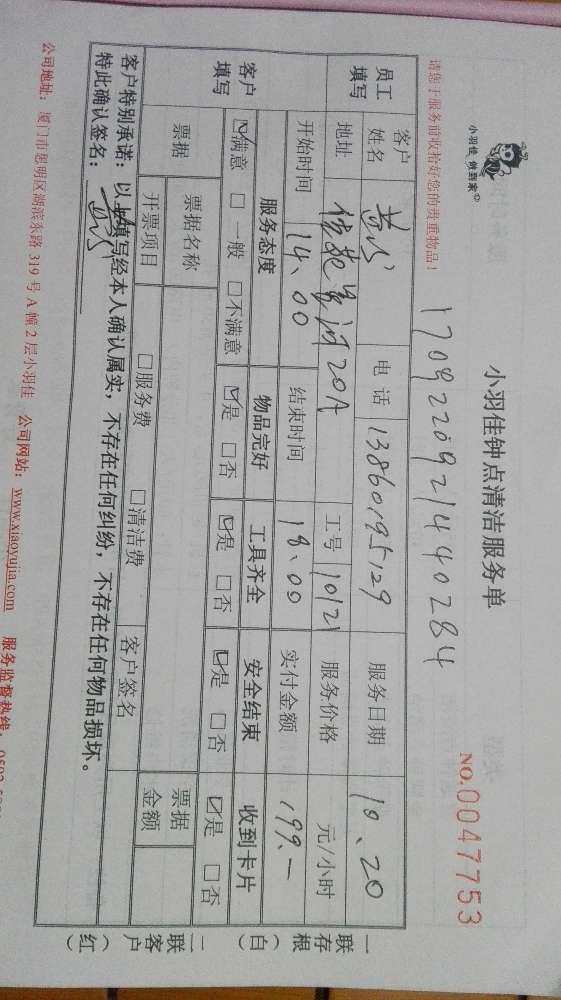 小羽佳 领到家
请您于服务前收拾好您的贵重物品！
小羽佳钟点清洁服务单
NO.0047753
1709220921440284
员工填写 客户姓名 电话 13860195129 服务日期 10、20
地址 20A 工号 10121 服务价格 元/小时
开始时间 14、00 结束时间 18、00 实付金额 199.—
客户填写 服务态度 物品完好 工具齐全 安全结束 收到卡片
☑满意 □一般 □不满意 ☑是 □否 ☑是 □否 ☑是 □否 ☑是 □否
票据 票据名称 票据金额
开票项目 □服务费 □清洁费 客户签名
客户特别承诺：以上填写经本人确认属实，不存在任何纠纷，不存在任何物品损坏。
特此确认签名：
一联存根（白）
二联客户（红）
公司地址：厦门市思明区湖滨东路 319 号 A 幢 2 层小羽佳 公司网站：www.xiaoyujia.com 服务监督热线：